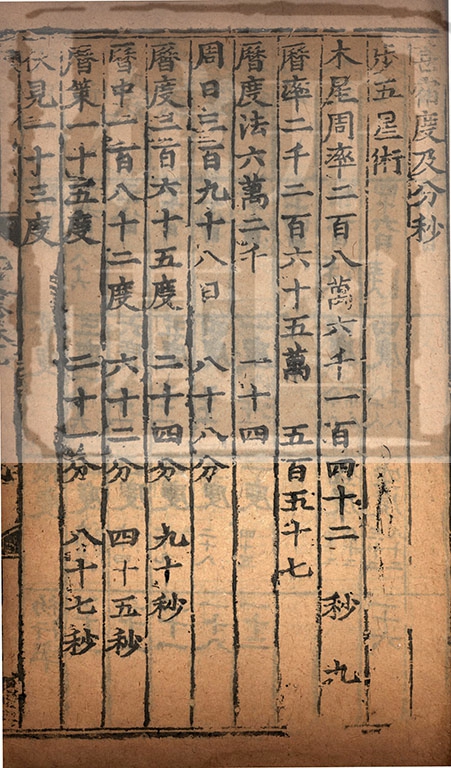 宿度及分秒
步五星術
木星周率二百八萬六千一百四十二 秒 九
曆率二千二百六十五萬 五百五十七
曆度法六萬二千 一十四
周日三百九十八日 八十八分
曆度三百六十五度 二十四分 九十秒
曆中一百八十二度 六十二分 四十五秒
曆策一十五度 二十一分 八十七秒
伏見一十三度